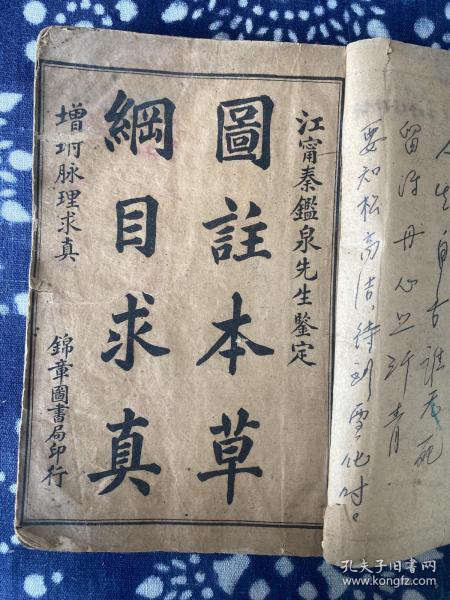 人生自古谁无死
留沵丹心照汗青
要知松高洁，待到雪化时。
江甯秦鑑泉先生鑒定
圖註本草
綱目求真
增坿脉理求真
錦章圖書局印行
孔夫子旧书网
www.kongfz.com